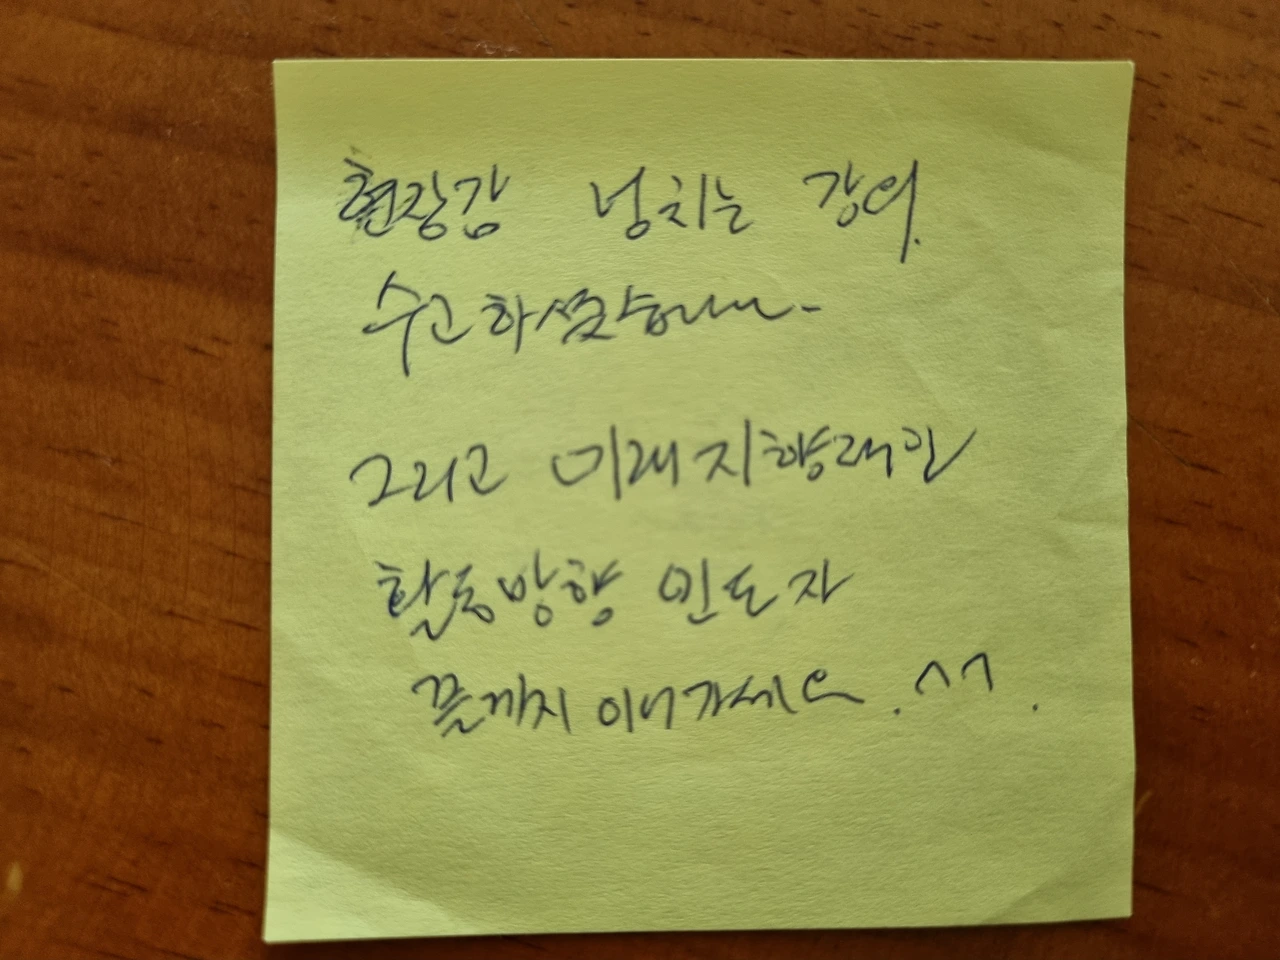 현장감 넘치는 강의.
수고하셨습니다-
그리고 미래지향적인
활동방향 인도자
끝까지 이어가세요. ^^.